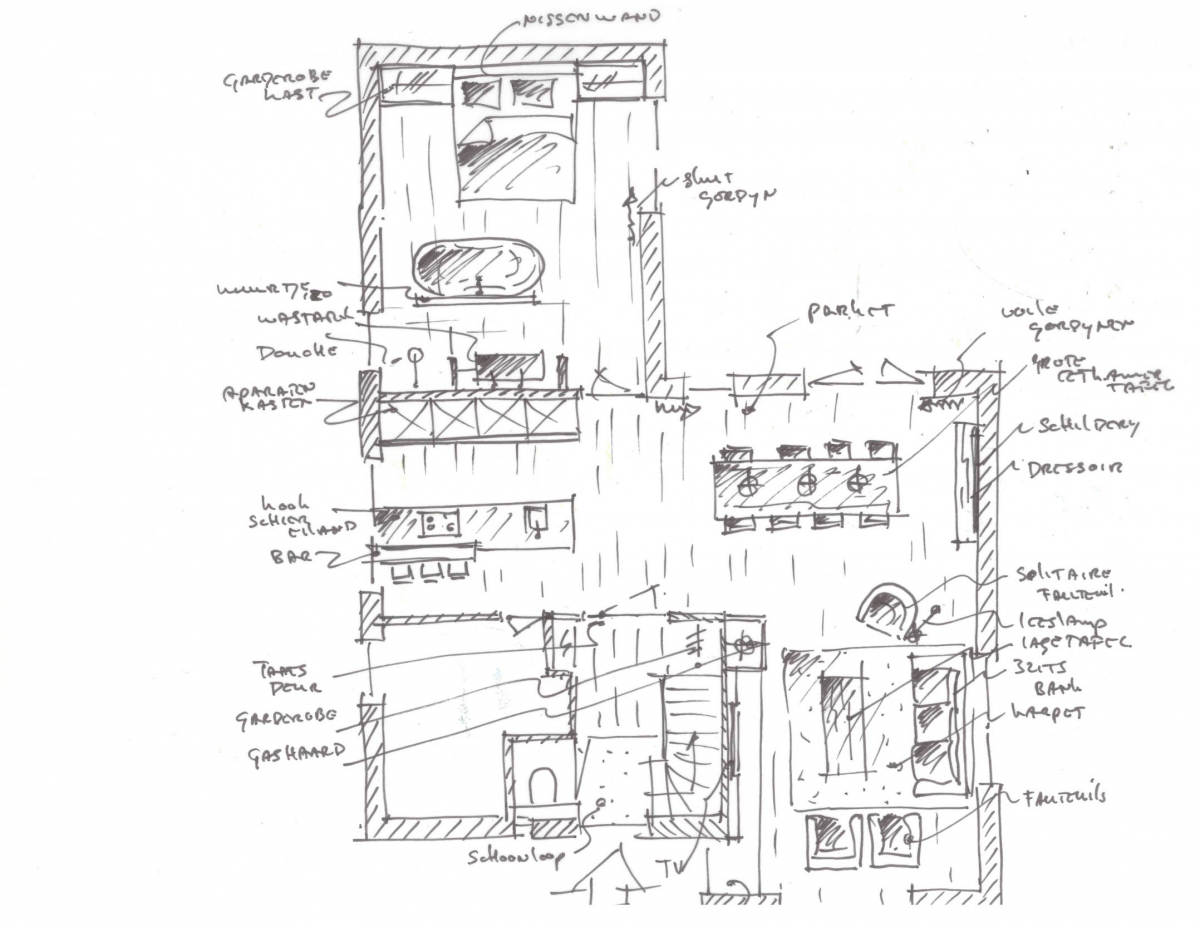 NISSENWAND
GARDEROBE
KAST
GORDYN
MUURTJE
WASTAFEL
DOUCHE
APARATEN
KASTEN
PARKET
VOILE
GORDYNEN
GROTE
EETKAMER
TAFEL
SCHILDERY
DRESSOIR
KOOK
SCHIER
EILAND
BAR
SOLITAIRE
FAUTEUIL.
LEESLAMP
LAGE TAFEL
3ZITS
BANK
KARPET
TAATS
DEUR
GARDEROBE
GASHAARD
FAUTEUILS
SCHOONLOOP
TV